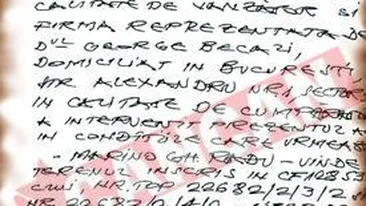 CALITATE DE VANZATOR SI
FIRMA REPREZENTATA DE
DUL GEORGE BECALI,
DOMICILIAT IN BUCURESTI,
STR ALEXANDRU NR.1, SECTOR
IN CALITATE DE CUMPARATOR
A INTERVENIT PREZENTUL A
IN CONDITIILE CARE URMEAZ
- MARINO GH. RADU - VINDE
TERENUL INSCRIS IN CF12853
CLUJ, NR. TOP 22682/2/3/2
NR 22682/